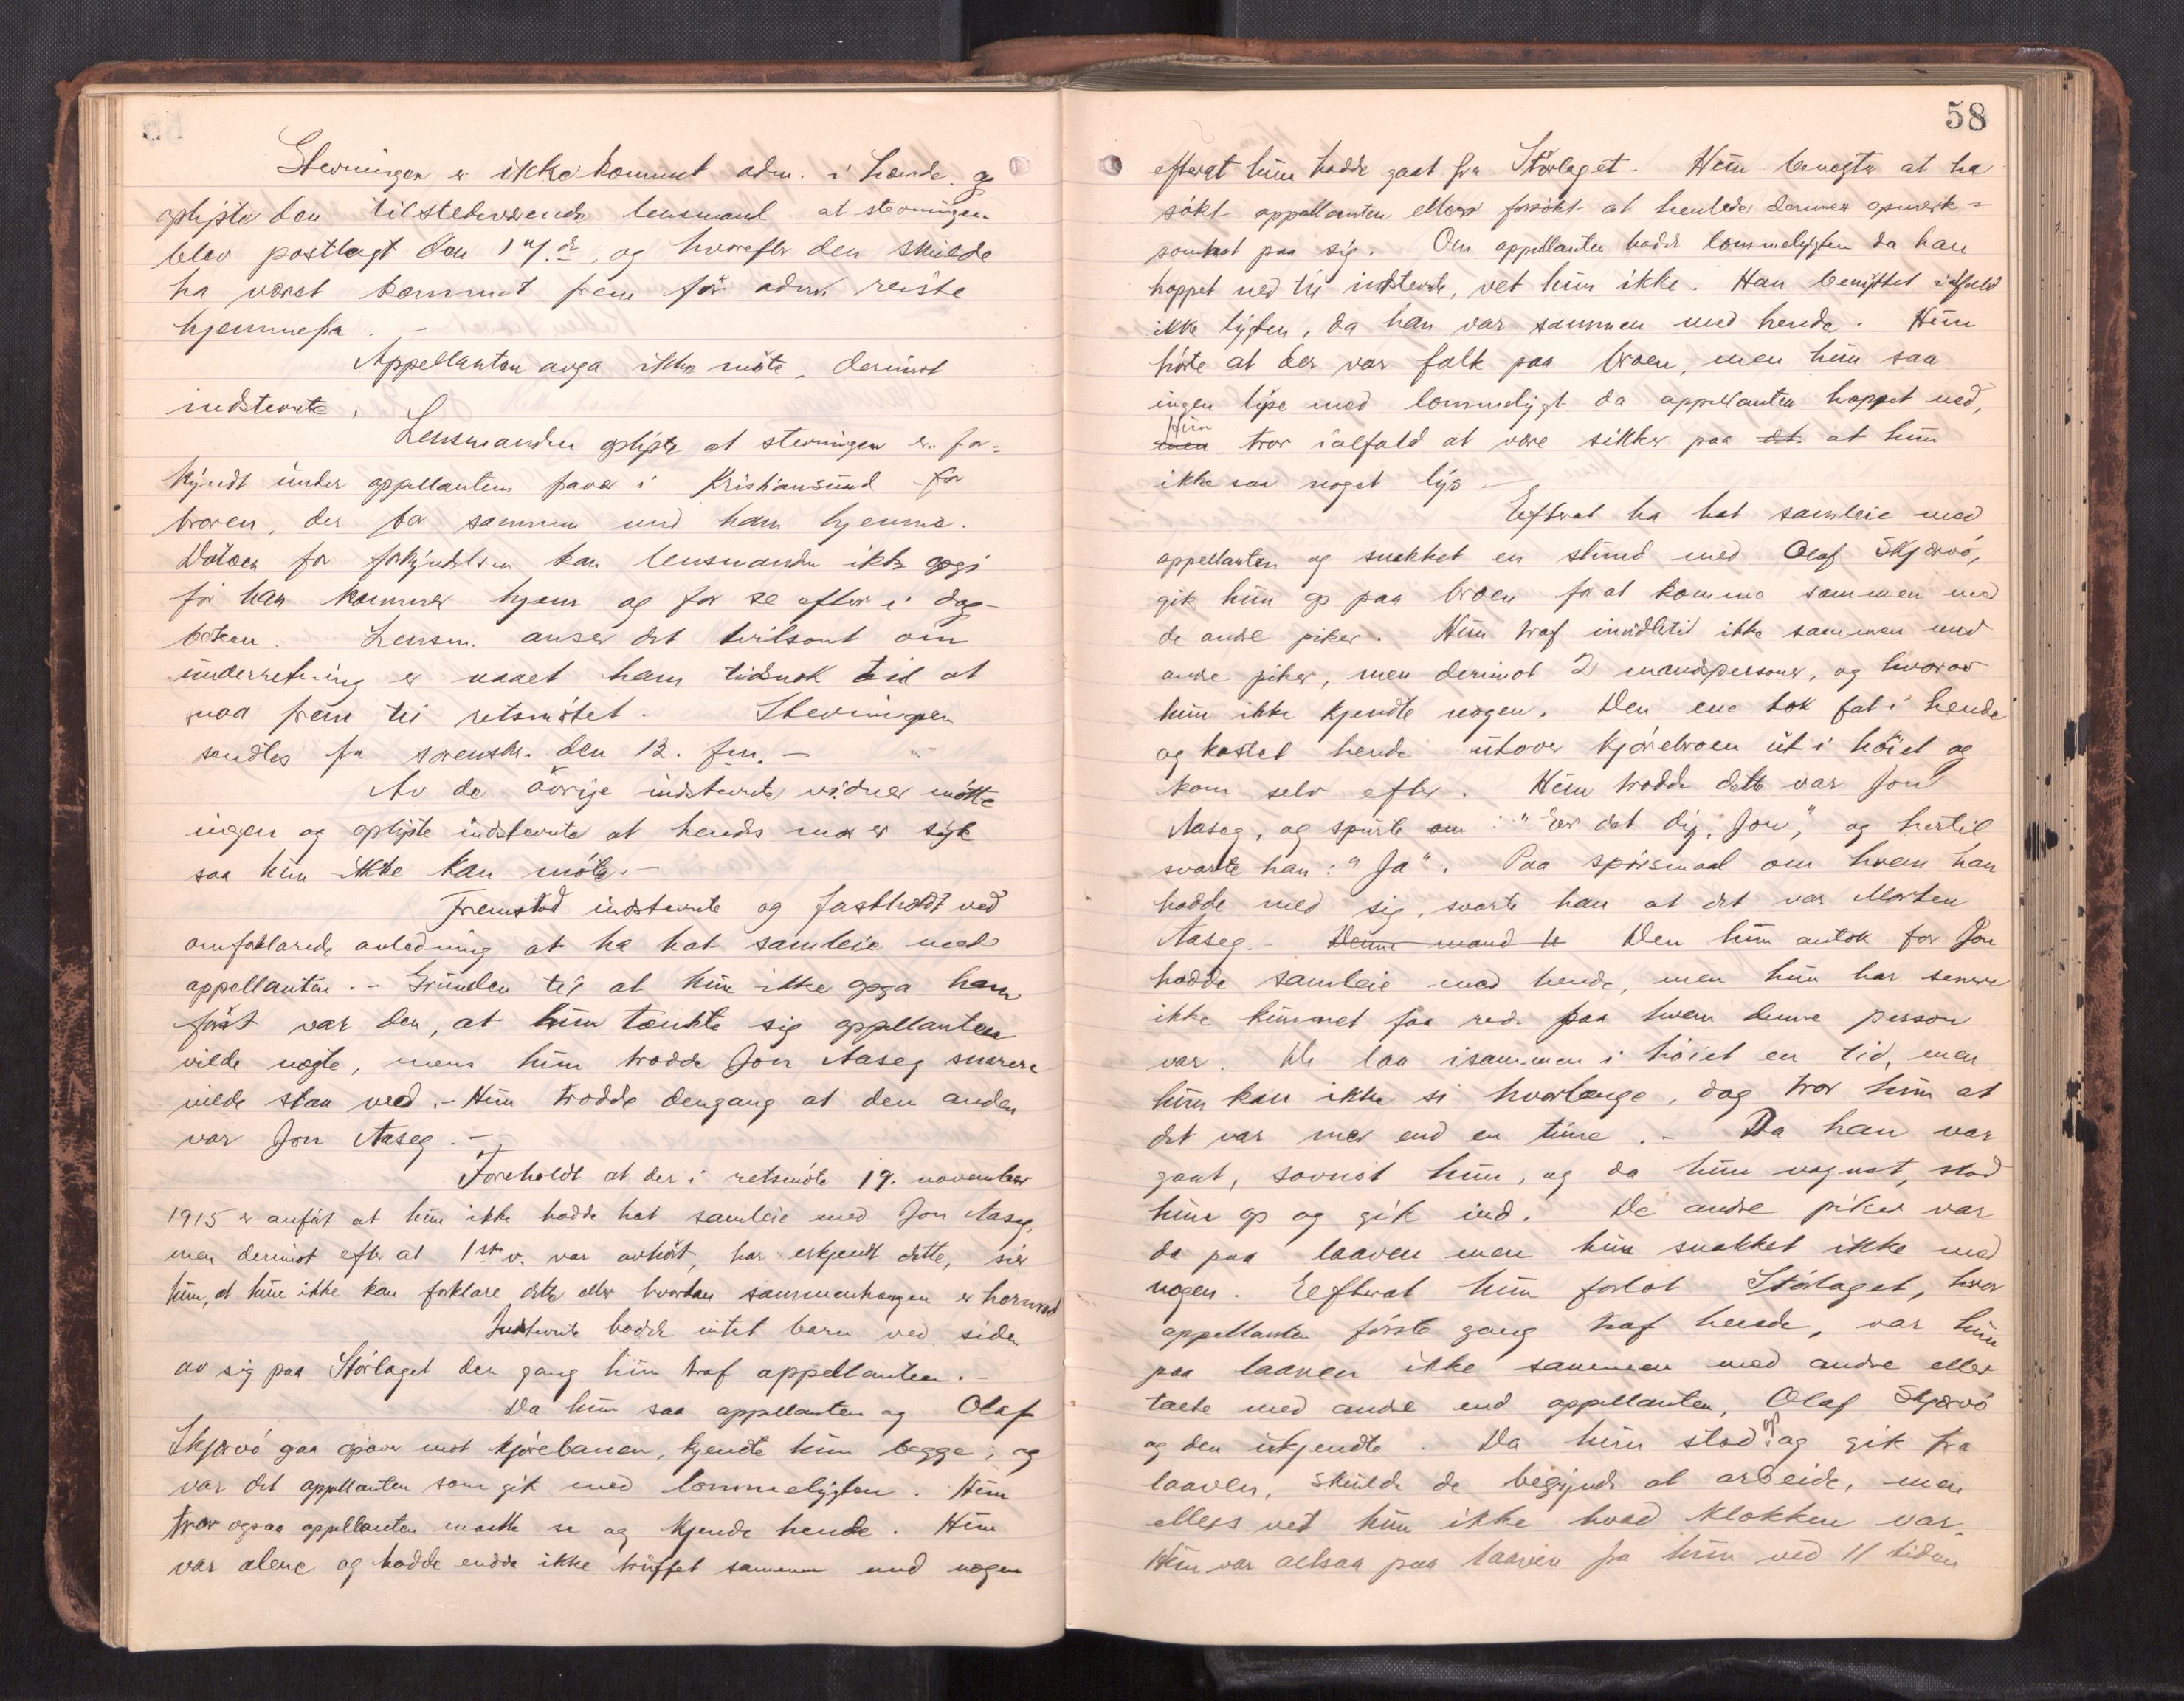 Stevningen er ikke kommet adm. i hænde. og
oplyste den tilstedeværende lensmand at stevningen
blev postlagt den 17. ds, og hvorefter den skulde
ha været kommet frem før adm. reiste
hjemmefra. -
Appellanten avga ikke møte, derimot
indstevnte.
Lensmanden oplyste at stevningen er for=
kyndt under appellantens fravær i Kristiansund for
broren, der bor sammen med ham hjemme.
Datoen for forkyndelsen kan lensmanden ikke opgi
før han kommer hjem og for se efter i dag-
boken. Lensm. anser det tvilsomt om
underretning er naaet ham tidsnok til at
naa frem til retsmøtet. Stevningen
sendtes fra sorenskr. den 12. fm. -
Av de øvrige indstevnte vidner møtte
ingen og oplyste indstevnte at hendes mor er syk
saa hun ikke kan møte. -
Fremstod indstevnte og fastholdt ved
omforklarede avledning at ha hat samleie med
appellanten. - Grunden til at hun ikke opga ham
først var den, at hun tænkte sig appellanten
vilde negte, mens hun trodde Jon Aaseg snarere
vilde staa ved. - Hun trodde dengang at den anden
var Jon Aaseg. -
Foreholdt at der i retsmøte 19. november
1915 er anført at hun ikke hadde hat samleie med Jon Aaseg,
men derimot efter at 1ste v. var avhørt, har erkjendt dette, sier
hun, at hun ikke kan forklare dette eller hvordan sammenhængen er hermed
Indstevnte hadde intet barn ved siden
av sig paa Størlaget den gang hun traf appellanten. -
Da hun saa appellanten og Olaf
Skjærvø gaa opover mot kjørebanen, kjendte hun begge, og
var det appellanten som gik med lommelygten. Hun
tror ogsaa appellanten maatte se og kjende hende. Hun
var alene og hadde endda ikke truffet sammen med nogen
58
efterat hun hadde gaat fra Størlaget. Hun benegter at ha
søkt appellanten eller forsøkt at henlede dennes opmerk=
somhet paa sig. Om appellanten hadde lommelygten da han
hoppet ned til indstevnte, vet hun ikke. Han benyttet ialfald
ikke lygten, da han var sammen med hende. Hun
hørte at der var folk paa broen, men hun saa
ingen lyse med lommelygt da appellanten hoppet ned,
Hun
men tror ialfald at være sikker paa det at hun
ikke saa noget lys -
Efterat ha hat samleie med
appellanten og snakket en stund med Olaf Skjærvø,
gik hun op paa broen for at komme sammen med
de andre piker. Hun traf imidlertid ikke sammen med
andre piker, men derimot 2 mandspersoner, og hvorav
hun ikke kjendte nogen. Den ene tok fat i hende
og kastet hende utover kjørebroen ut i høiet og
kom selv efter. Hun trodde dette var Jon
Aaseg, og spurte om: "Er det dig, Jon", og hertil
svarte han: "Ja". Paa spørsmaal om hvem han
hadde med sig, svarte han at det var Morten
Aaseg. - Denne mand h Den hun antok for Jon
hadde samleie med hende, men hun har senere
ikke kunnet faa rede paa hvem denne person
var. De laa isammen i høiet en tid, men
hun kan ikke si hvorlænge, dog tror hun at
det var mer end en time. - Da han var
gaat, sovnet hun, og da hun vaagnet, stod
hun op og gik ind. De andre piker var
da paa laaven men hun snakket ikke med
nogen. Efterat hun forlot Størlaget, hvor
appellanten første gang traf hende, var hun
paa laaven ikke sammen med andre eller
talte med andre end appellanten, Olaf Skjærvø
og den ukjendte. Da hun stod op og gik fra
laaven, skulde de begynde at arbeide, men
ellers vet hun ikke hvad klokken var.
Hun var altsaa paa laaven fra hun ved 11 tiden